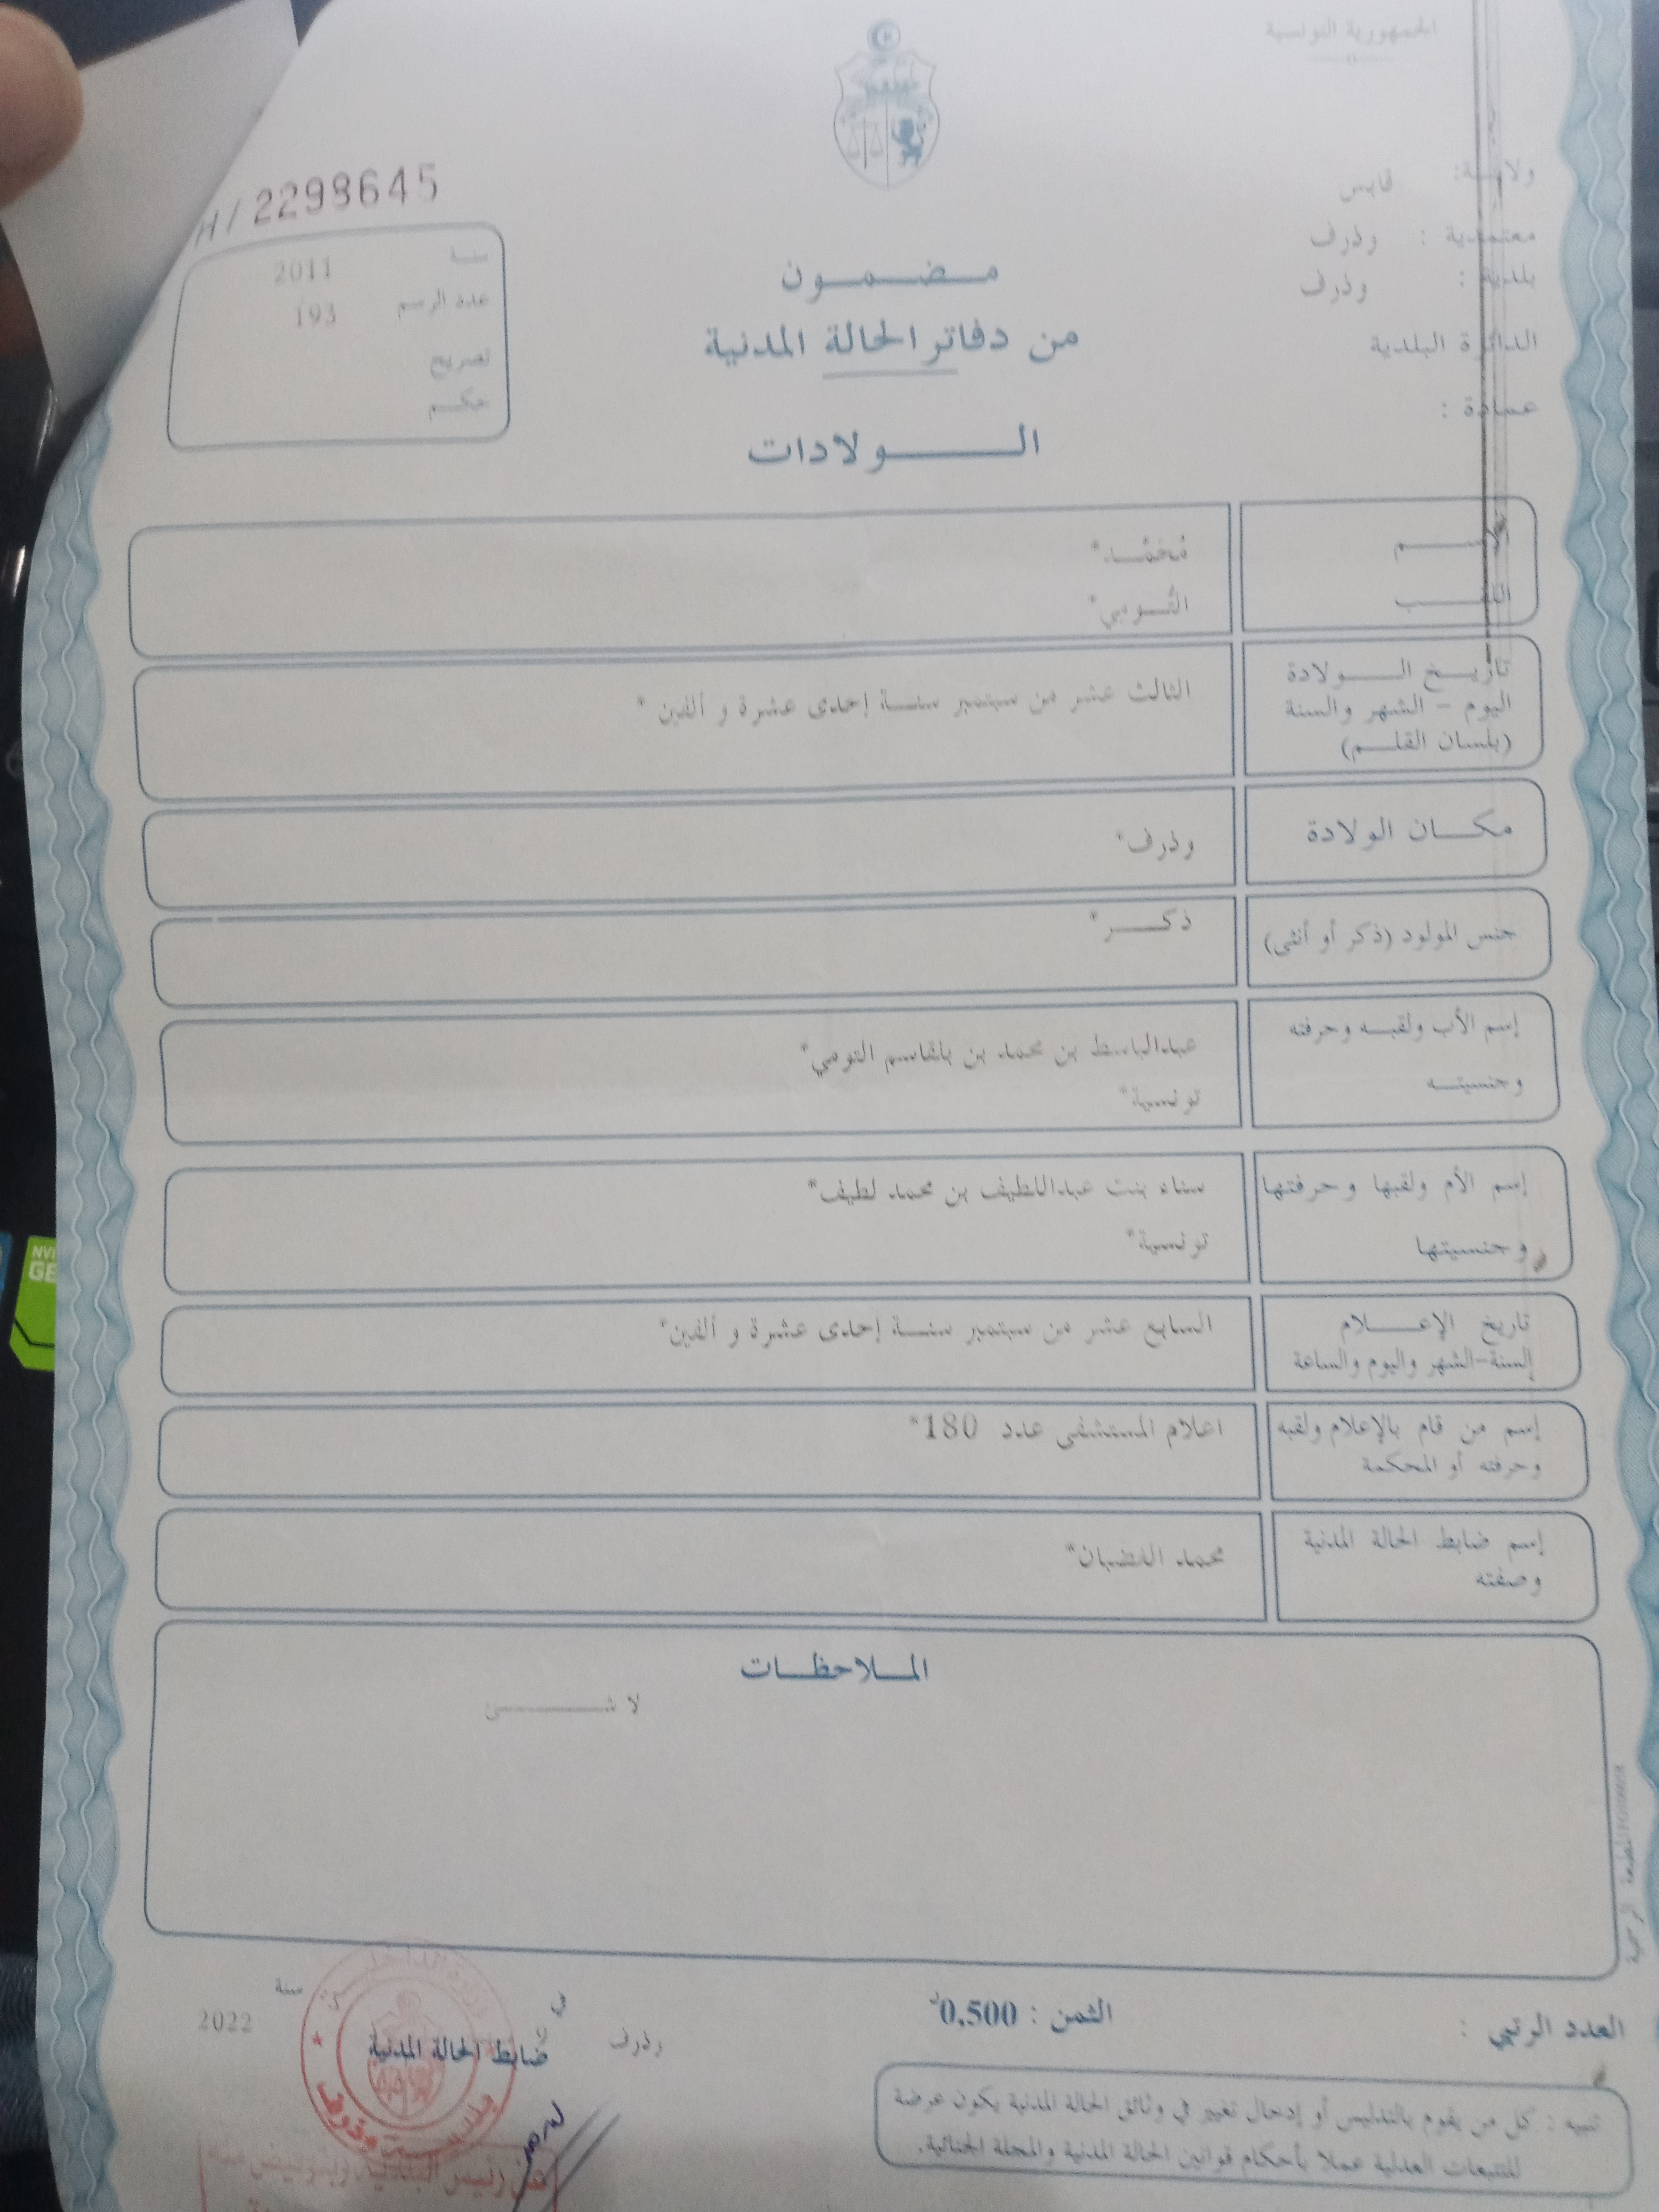 الجمهورية التونسية
ولاية: قابس
معتمدية : وذرف
بلدية : وذرف
الدائرة البلدية
عمادة :
H/2298645
سنة 2011
عدد الرسم 193
تصريح
حكم
مضمون
من دفاتر الحالة المدنية
الولادات
الاسم مُحَمَّد*
اللقب التُّومي*
تاريخ الولادة
اليوم - الشهر والسنة
(بلسان القلم)
الثالث عشر من سبتمبر سنة إحدى عشرة و ألفين *
مكان الولادة
وذرف*
جنس المولود (ذكر أو أنثى)
ذكر*
إسم الأب ولقبه وحرفته
وجنسيته
عبدالباسط بن محمد بن بلقاسم التومي*
تونسية*
إسم الأم ولقبها وحرفتها
وجنسيتها
سناء بنت عبداللطيف بن محمد لطيف*
تونسية*
تاريخ الإعلام
السنة-الشهر واليوم والساعة
السابع عشر من سبتمبر سنة إحدى عشرة و ألفين*
إسم من قام بالإعلام ولقبه
وحرفته أو المحكمة
اعلام المستشفى عدد 180*
إسم ضابط الحالة المدنية
وصفته
محمد الغضبان*
الملاحظات
لا شئ
العدد الرتبي :
الثمن : 0,500د
وذرف في سنة 2022
ضابط الحالة المدنية
تنبيه : كل من يقوم بالتدليس أو إدخال تغيير في وثائق الحالة المدنية يكون عرضة
للتتبعات العدلية عملا بأحكام قوانين الحالة المدنية والمجلة الجنائية.
المطبعة الرسمية